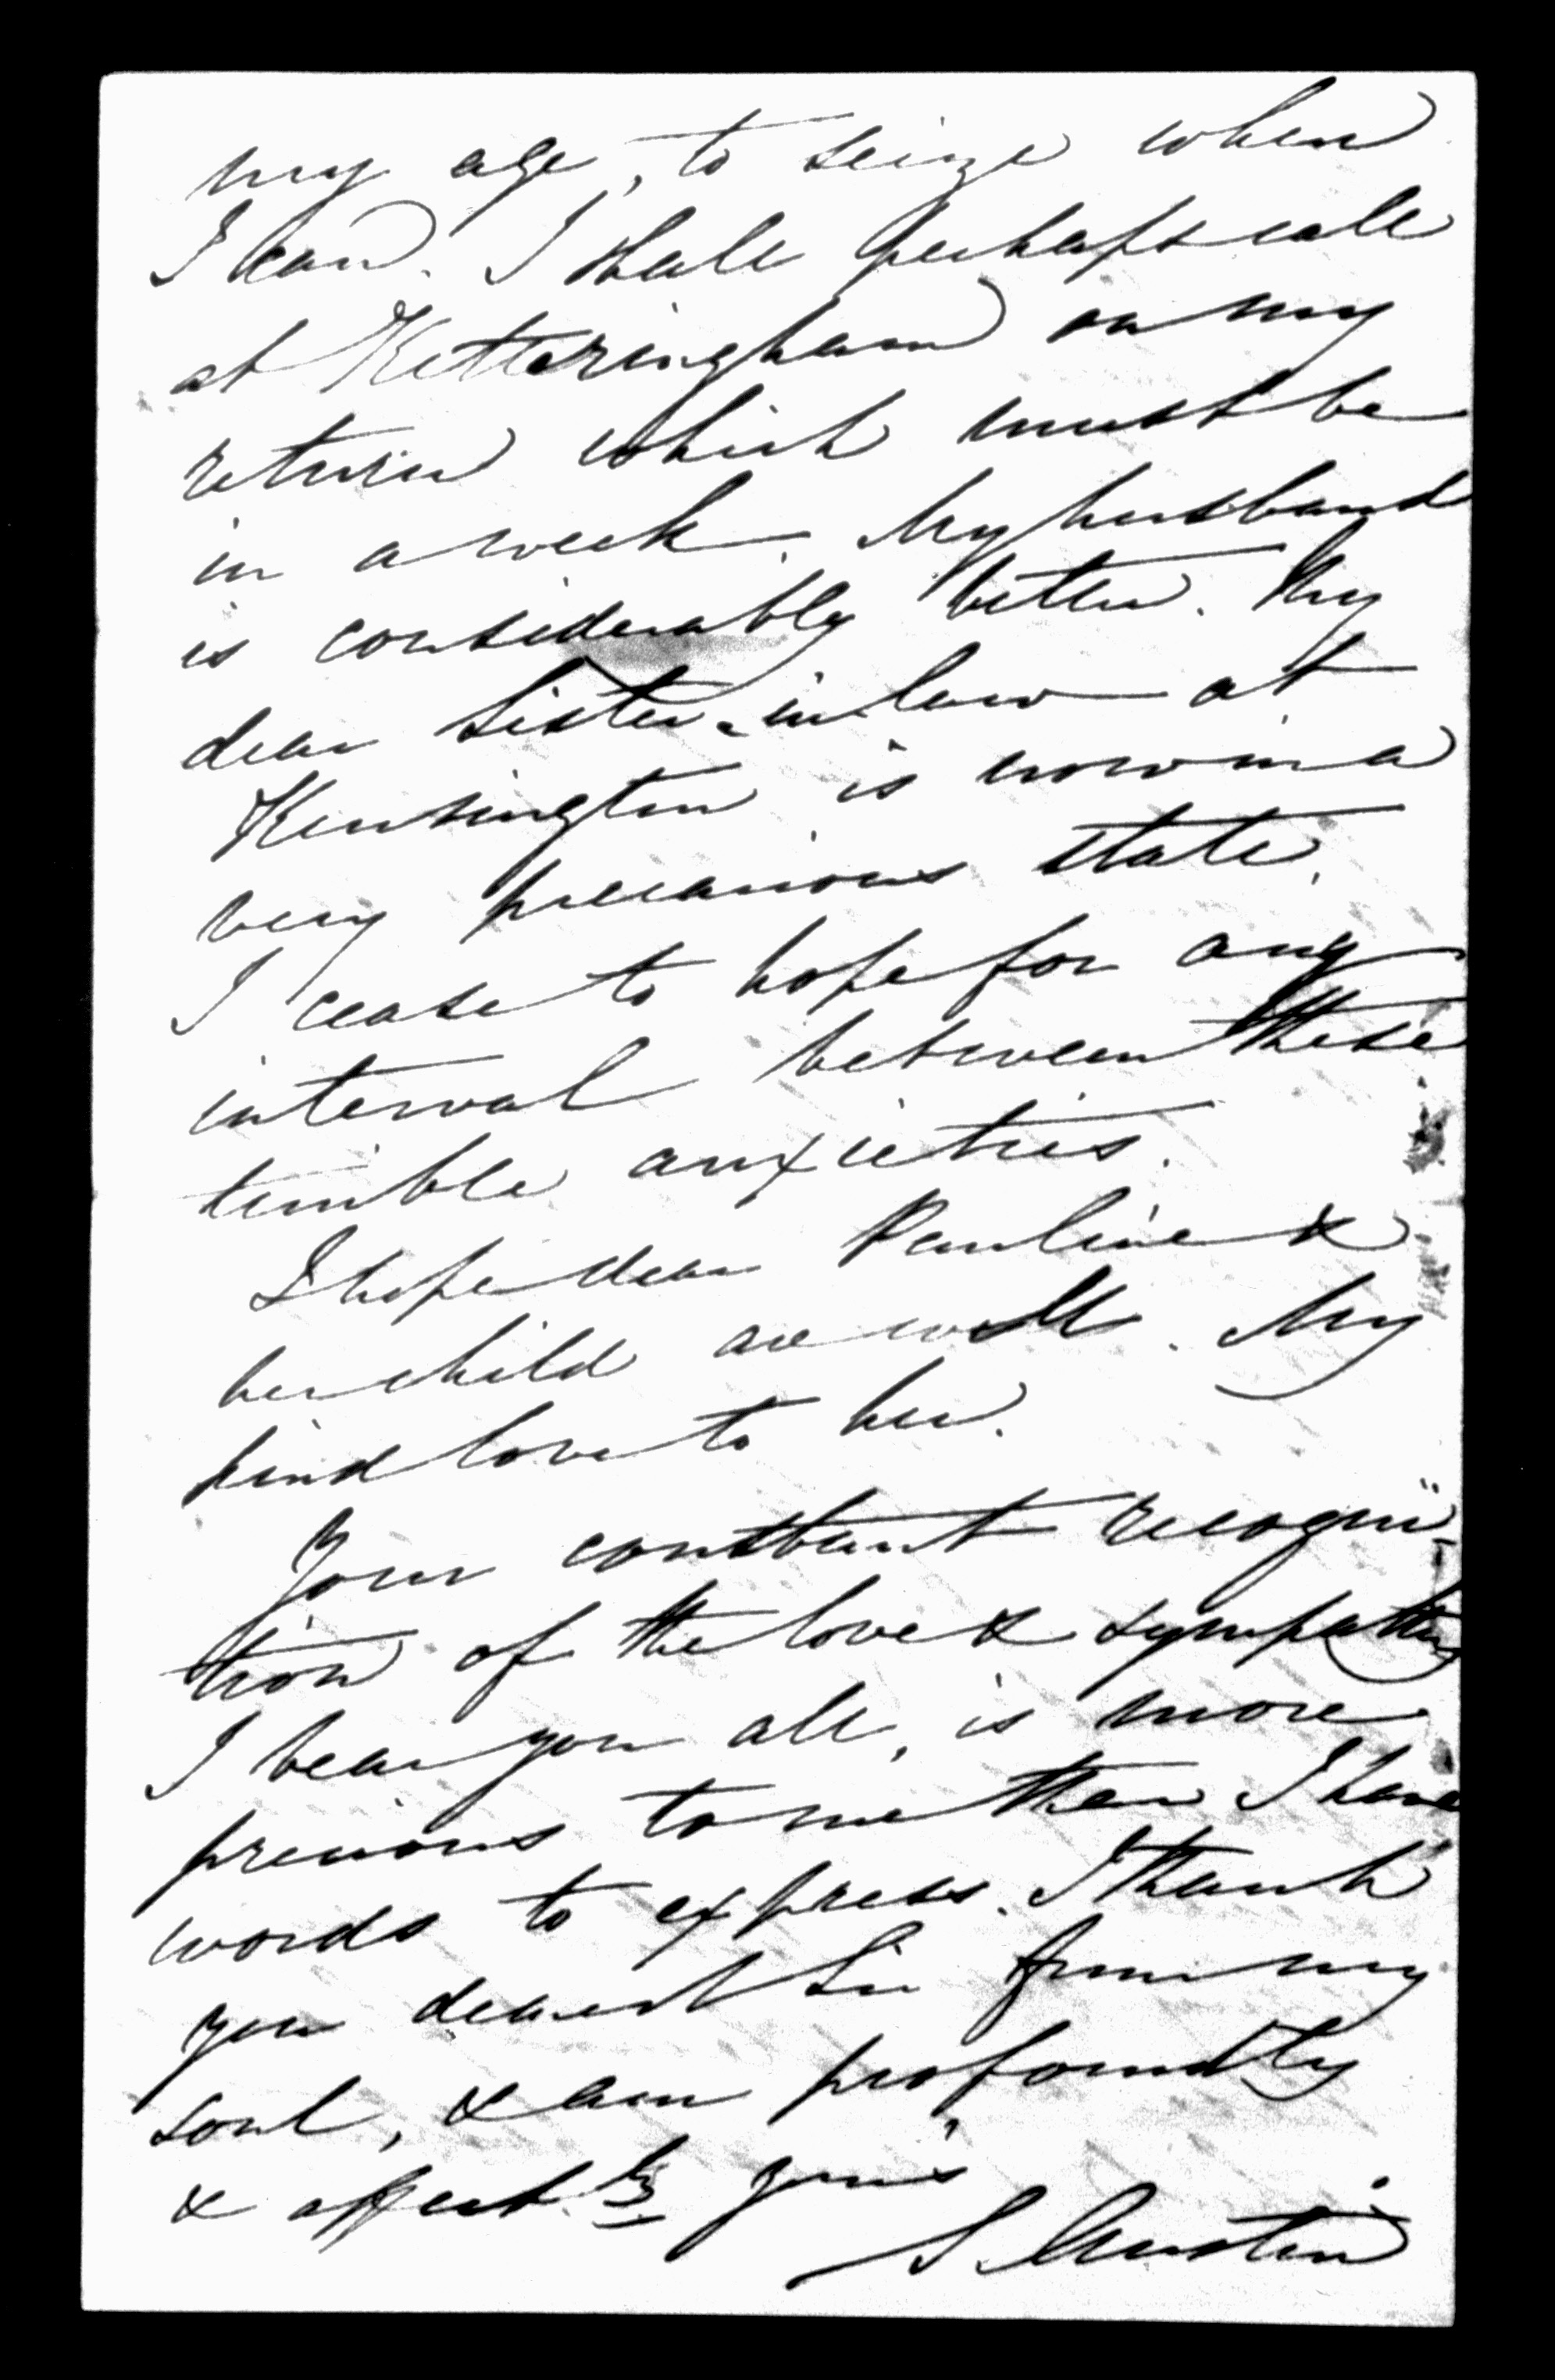 my age, to seize when
I can. I shall perhaps call
at Ketteringham on my
return which must be
in a week. My husband
is considerably better. My
dear Sister-in-law at
Kensington is now in a
very precarious state.
I cease to hope for any
interval between these
terrible anxieties.
I hope dear Pauline &
her child are well. My
kind love to her.
Your constant recogni-
tion of the love & sympathy
I bear you all, is more
precious to me than I have
words to express. I thank
you dearest Sir from my
soul, & am profoundly
& affectly yours
S Austin